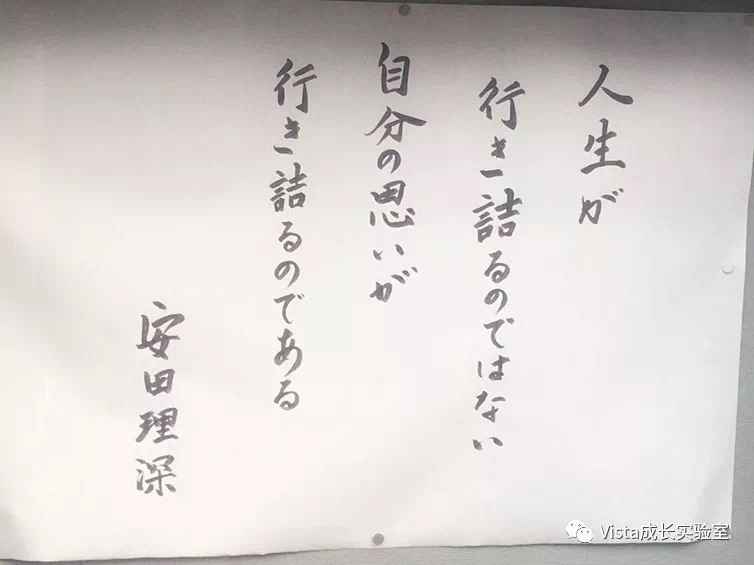 人生が
行き詰るのではない
自分の思いが
行き詰るのである
安田理深
Vista成长实验室